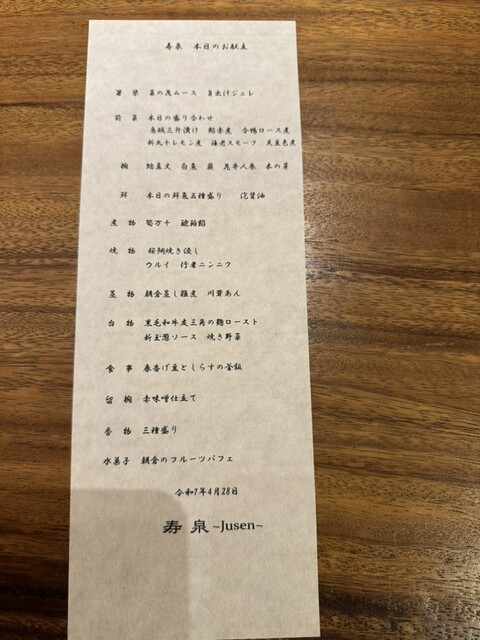 寿泉 本日のお献立
箸染 菜の花ムース 旨出汁ジュレ
前菜 本日の盛り合わせ
烏賊三升漬け 鮎赤煮 合鴨ロース煮
新丸十レモン煮 海老スモーク 天豆色煮
椀 蛤真丈 白魚 蕨 花弁人参 木の芽
鮮 本日の鮮魚五種盛り 泡醤油
煮物 筍万十 琥珀餡
焼物 桜鯛焼き浸し
ウルイ 行者ニンニク
蒸物 朝倉蒸し雑煮 川茸あん
台物 黒毛和牛友三角の麹ロースト
新玉葱ソース 焼き野菜
食事 春告げ豆としらすの釜飯
留椀 赤味噌仕立て
香物 三種盛り
水菓子 朝倉のフルーツパフェ
令和7年4月28日
寿泉 ~Jusen~